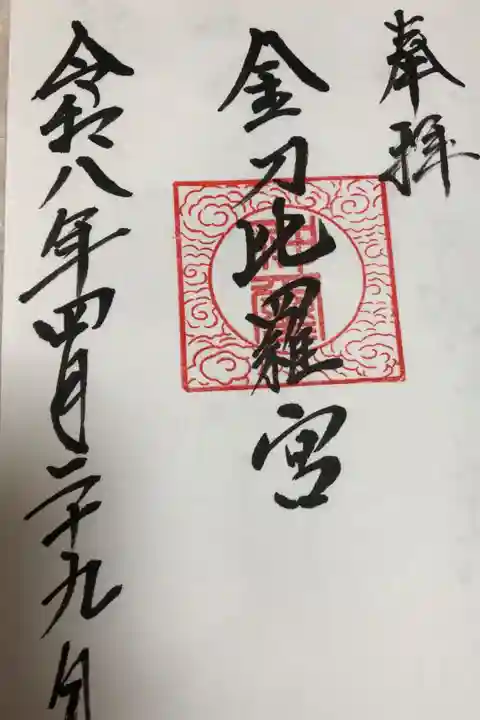 奉拝
金刀比羅宮
令和八年四月二十九日